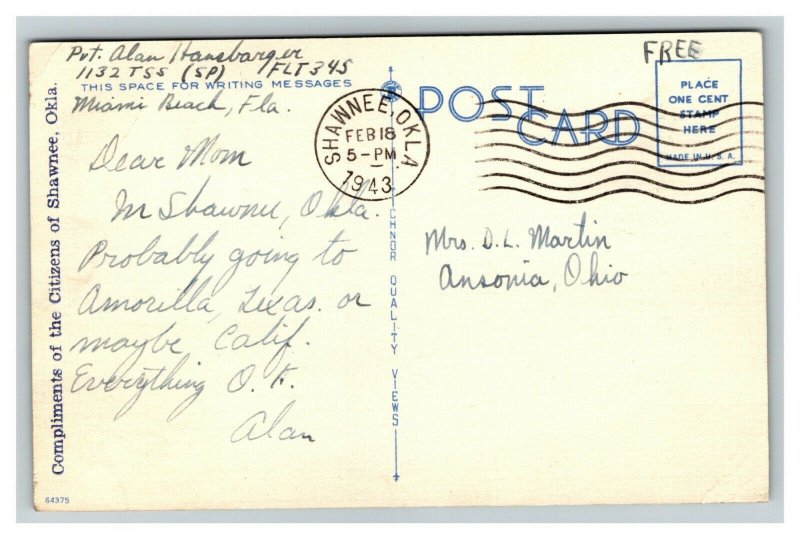 Pvt. Alan Hansbarger
1132 TSS (SP) FLT 345
THIS SPACE FOR WRITING MESSAGES
Miami Beach, Fla.
Dear Mom
In Shawnee, Okla.
Probably going to
Amorilla, Texas. or
maybe Calif.
Everything O.K.
Alan
Compliments of the Citizens of Shawnee, Okla.
64375
SHAWNEE, OKLA
FEB 18
5-PM
1943
POST CARD
FREE
PLACE
ONE CENT
STAMP
HERE
MADE IN U.S.A.
ICHNOR QUALITY VIEWS
Mrs. D.L. Martin
Ansonia, Ohio